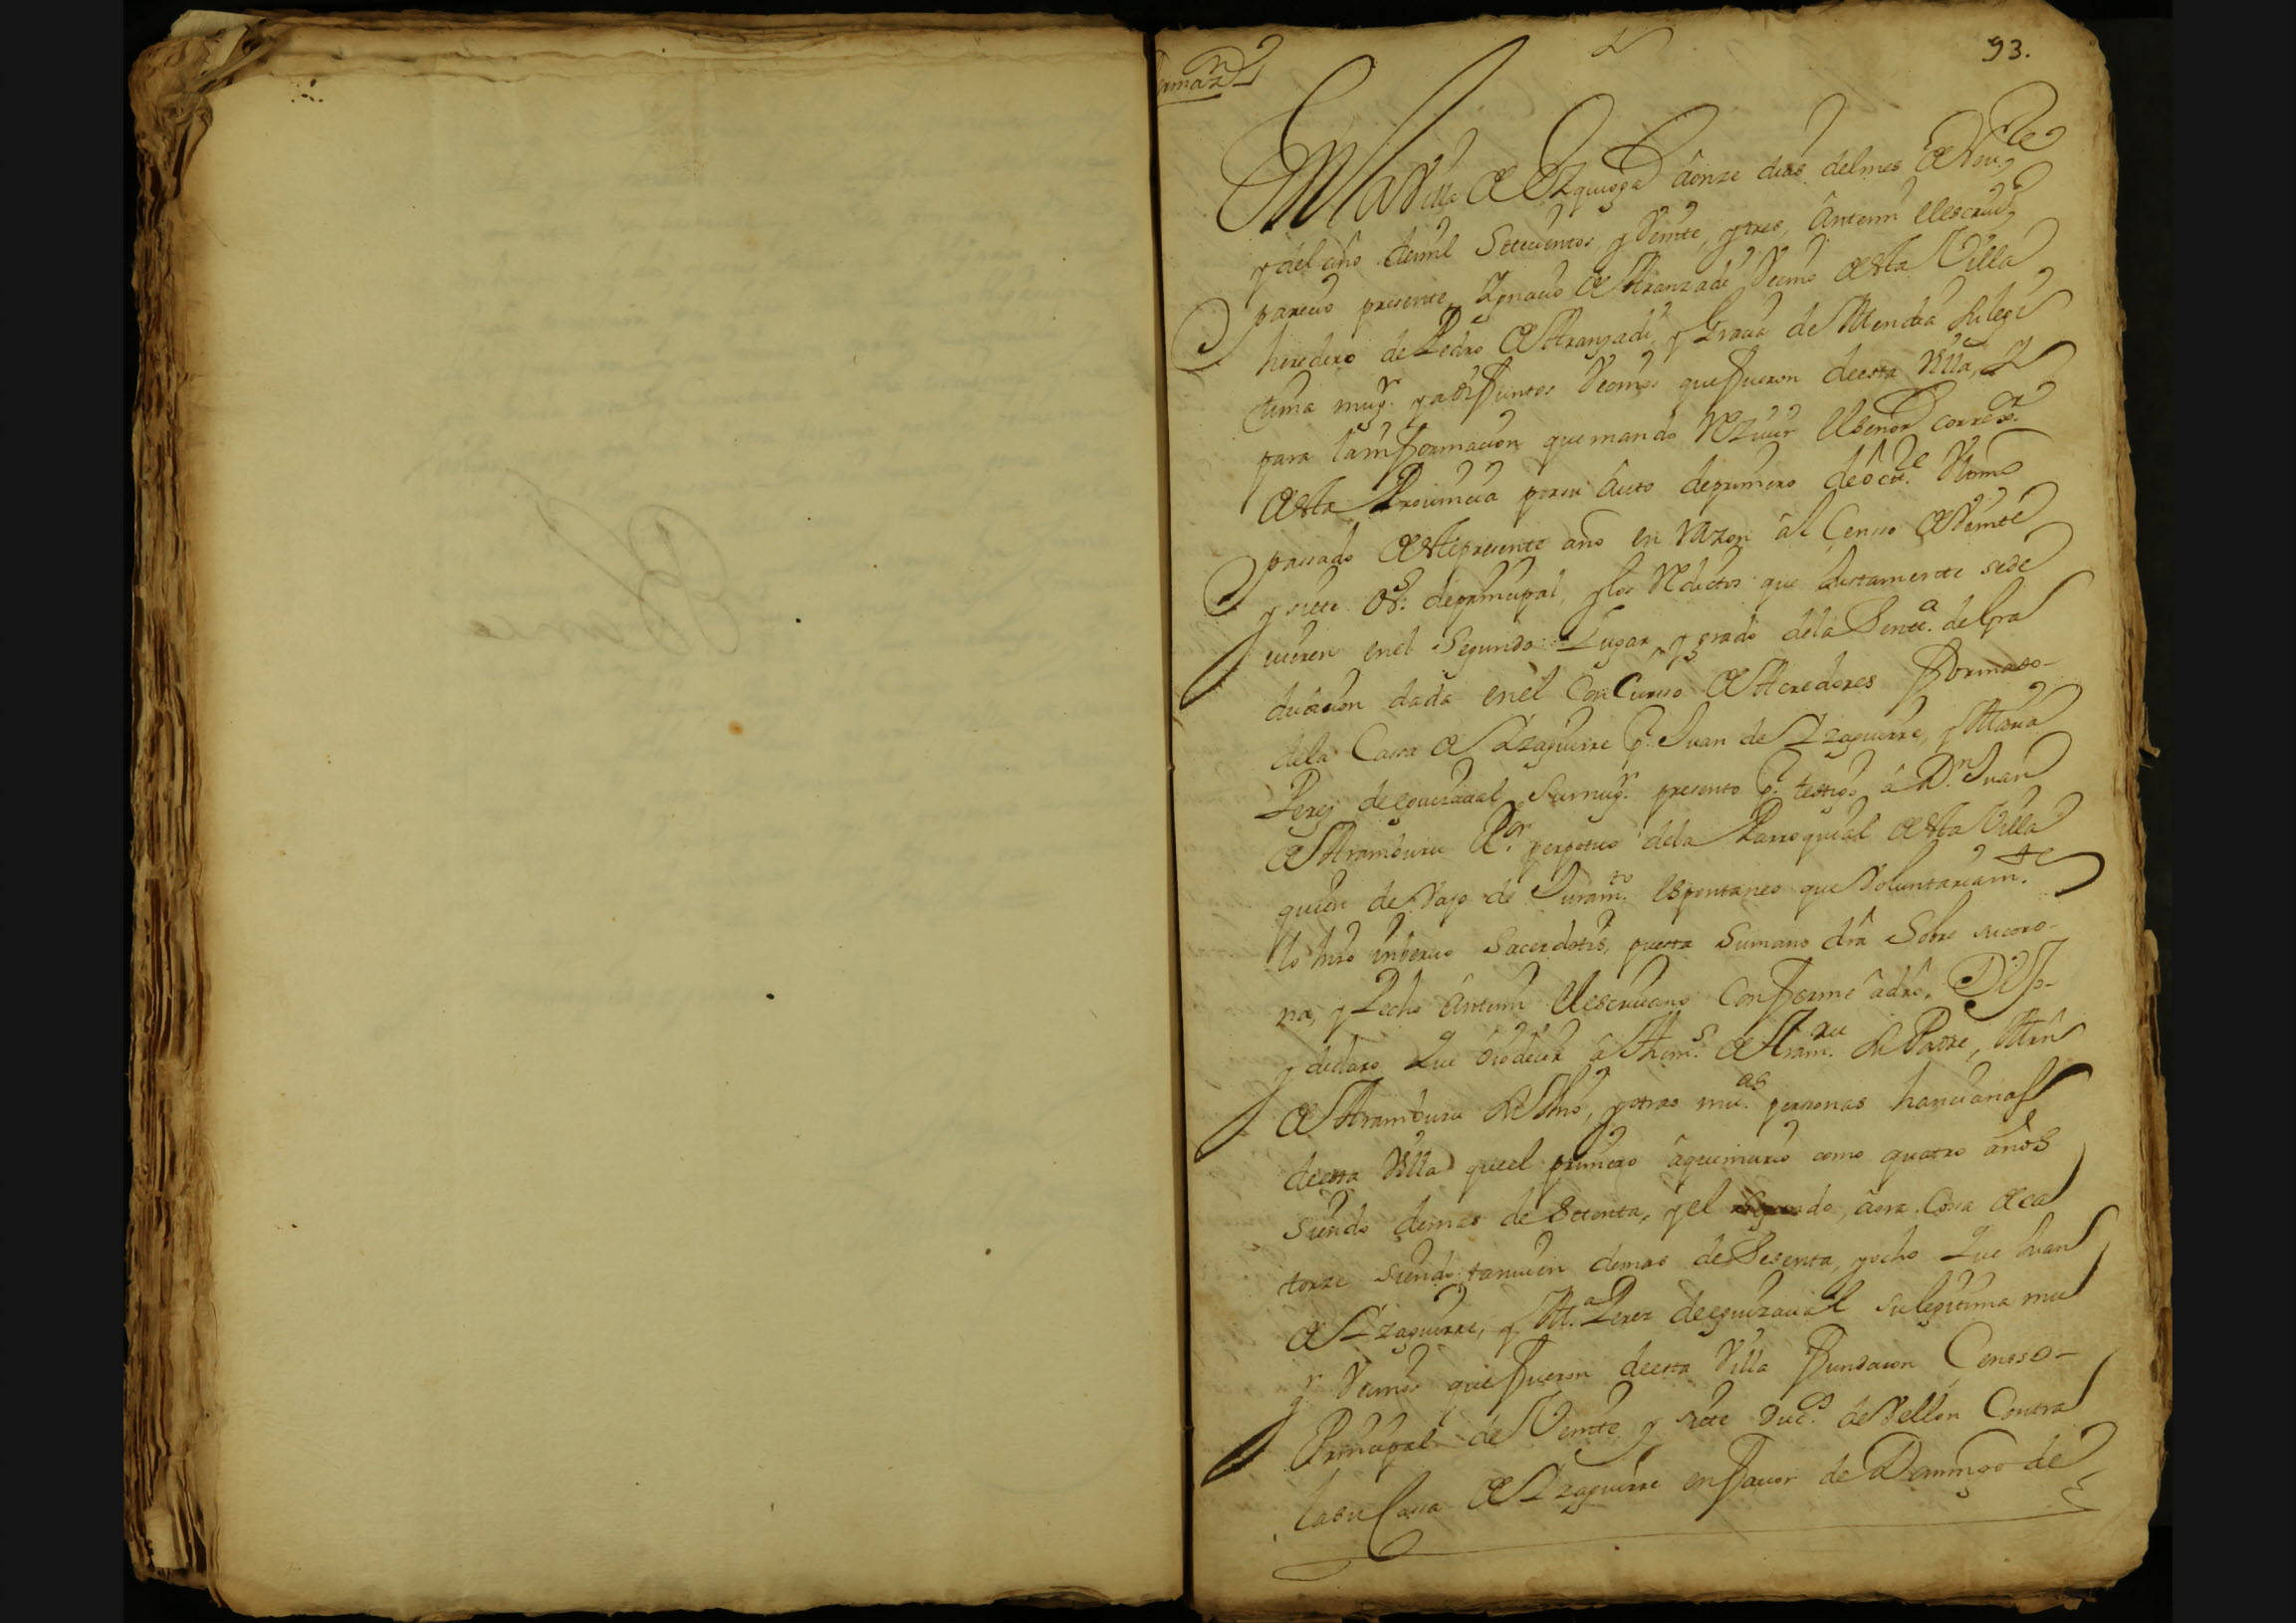 93.
En la Villa de Ezquioga a onze dias del mes de Nou.re
y del año de mil Setecientos, y Veinte, y tres, Antemi el escriu.o
parecio presente, Ygnacio de Aranzadi Vecino desta Villa
heredero de Pedro de Aranzadi, y Gracia de Mendia su legi
tima mug.r ya difuntos Vecinos que fueron de esta Villa, y
para la informacion que mando Rziuir el señor correx.or
desta Prouincia por su auto de primero de octu.e Ultimo
passado deste presente año en razon al Censo de Veinte
y siete D.s de principal, y los Reditos que Justamente se de
uieren en el Segundo Lugar, y grado de la Senta.a de Gra
duacion dada en el Concurso de Acredores formado-
de la Cassa de Yzaguirre p.r Juan de Yzaguirre, y Maria
Perez de eguizaual su mug.r presento p.r testigo a D.n Juan
de Aramburu R.or perpetuo de la Parroquial desta Villa
quien de Vajo de Juram.to espontaneo que Voluntariam.te
lo hizo in verbo Sacerdotis, puesta Su mano dra Sobre su coro-
na, y Pecho antemi el escriuano Conforme a dro. Dijo-
y declaro Que oio decir a Thom.s de Aram.ru su Padre, Mrn
de Aramburu su thio, y otras mu.as personas hancianas
de esta Villa que el primero aque murio como quatro años
Siendo de mas de Setenta, y el Segundo, aora Cosa de ca
torze Siendo tamuien de mas de Sesenta, y ocho Que Juan
de Yzaguirre, y M.a Perez de eguizaual su legitima mu
g.r Vecinos que fueron de esta Villa fundaron Censso-
Principal de Veinte, y siete Duc.s de Vellon Contra
la su Cassa de Yzaguirre en fauor de Domingo de